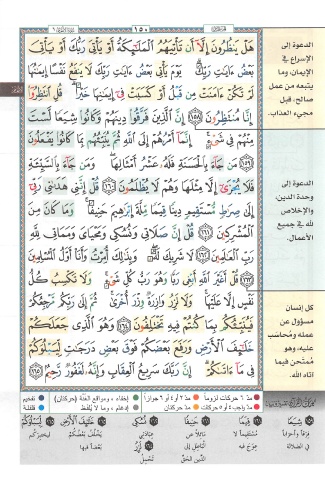 ١٥٠
هَلْ يَنظُرُونَ إِلَّا أَن تَأْتِيَهُمُ الْمَلَٰٓئِكَةُ أَوْ يَأْتِيَ رَبُّكَ أَوْ يَأْتِيَ
بَعْضُ ءَايَٰتِ رَبِّكَ ۗ يَوْمَ يَأْتِي بَعْضُ ءَايَٰتِ رَبِّكَ لَا يَنفَعُ نَفْسًا إِيمَٰنُهَا
لَمْ تَكُنْ ءَامَنَتْ مِن قَبْلُ أَوْ كَسَبَتْ فِيٓ إِيمَٰنِهَا خَيْرًا ۗ قُلِ انتَظِرُوٓا
إِنَّا مُنتَظِرُونَ ١٥٨ إِنَّ الَّذِينَ فَرَّقُوا دِينَهُمْ وَكَانُوا شِيَعًا لَّسْتَ
مِنْهُمْ فِي شَيْءٍ ۚ إِنَّمَآ أَمْرُهُمْ إِلَى اللَّهِ ثُمَّ يُنَبِّئُهُم بِمَا كَانُوا يَفْعَلُونَ
١٥٩ مَن جَآءَ بِالْحَسَنَةِ فَلَهُ عَشْرُ أَمْثَالِهَا ۖ وَمَن جَآءَ بِالسَّيِّئَةِ
فَلَا يُجْزَىٰٓ إِلَّا مِثْلَهَا وَهُمْ لَا يُظْلَمُونَ ١٦٠ قُلْ إِنَّنِي هَدَىٰنِي رَبِّيٓ
إِلَىٰ صِرَٰطٍ مُّسْتَقِيمٍ دِينًا قِيَمًا مِّلَّةَ إِبْرَٰهِيمَ حَنِيفًا ۚ وَمَا كَانَ مِنَ
الْمُشْرِكِينَ ١٦١ قُلْ إِنَّ صَلَاتِي وَنُسُكِي وَمَحْيَايَ وَمَمَاتِي لِلَّهِ
رَبِّ الْعَٰلَمِينَ ١٦٢ لَا شَرِيكَ لَهُ ۖ وَبِذَٰلِكَ أُمِرْتُ وَأَنَا أَوَّلُ الْمُسْلِمِينَ
١٦٣ قُلْ أَغَيْرَ اللَّهِ أَبْغِي رَبًّا وَهُوَ رَبُّ كُلِّ شَيْءٍ ۚ وَلَا تَكْسِبُ كُلُّ
نَفْسٍ إِلَّا عَلَيْهَا ۚ وَلَا تَزِرُ وَازِرَةٌ وِزْرَ أُخْرَىٰ ۚ ثُمَّ إِلَىٰ رَبِّكُم مَّرْجِعُكُمْ
فَيُنَبِّئُكُم بِمَا كُنتُمْ فِيهِ تَخْتَلِفُونَ ١٦٤ وَهُوَ الَّذِي جَعَلَكُمْ
خَلَٰٓئِفَ الْأَرْضِ وَرَفَعَ بَعْضَكُمْ فَوْقَ بَعْضٍ دَرَجَٰتٍ لِّيَبْلُوَكُمْ
فِي مَآ ءَاتَىٰكُمْ ۗ إِنَّ رَبَّكَ سَرِيعُ الْعِقَابِ وَإِنَّهُ لَغَفُورٌ رَّحِيمٌ ١٦٥
الدعوة إلى
الإسراع في
الإيمان، وما
يتبعه من عمل
صالح، قبل
مجيء العذاب.
الدعوة إلى
وحدة الدين،
والإخلاص
لله في جميع
الأعمال.
كل إنسان
مسؤول عن
عمله ومُحاسَب
عليه، وهو
مُمتَحن فيما
آتاه الله.
مدّ ٦ حركات لزوماً
مدّ ٢ أو ٤ أو ٦ جوازاً
إخفاء، ومواقع الغُنّة (حركتان)
تفخيم
مدّ واجب ٤ أو ٥ حركات
مدّ حركتان
إدغام، وما لا يُلفظ
قلقلة
شِيَعًا
قِيَمًا
حَنِيفًا
نُسُكِي
خَلَٰٓئِفَ الْأَرْضِ
لِّيَبْلُوَكُمْ